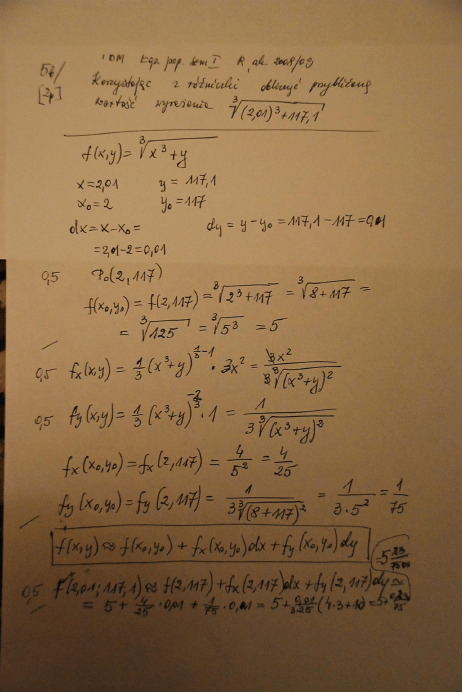 IDM Egz. pop. sem I R. ak. 2008/09
5b/ Korzystając z różniczki obliczyć przybliżoną
[2p] wartość wyrażenia ∛((2,01)³+117,1)
f(x,y) = ∛(x³+y)
x=2,01 y = 117,1
x₀=2 y₀=117
dx=x-x₀= dy = y-y₀ = 117,1-117=0,01
=2,01-2=0,01
0,5 P₀(2,117)
f(x₀,y₀) = f(2,117) = ∛(2³+117) = ∛(8+117) =
= ∛125 = ∛5³ = 5
0,5 fx(x,y) = 1/3 (x³+y)^(1/3-1) · 3x² = 3x²/(3∛(x³+y)²)
0,5 fy(x,y) = 1/3 (x³+y)^(-2/3) · 1 = 1/(3∛(x³+y)²)
fx(x₀,y₀) = fx(2,117) = 4/5² = 4/25
fy(x₀,y₀) = fy(2,117) = 1/(3∛(8+117)²) = 1/(3·5²) = 1/75
f(x,y) ≈ f(x₀,y₀) + fx(x₀,y₀)dx + fy(x₀,y₀)dy
0,5 f(2,01; 117,1) ≈ f(2,117) + fx(2,117)dx + fy(2,117)dy ≈
= 5 + 4/25 · 0,01 + 1/75 · 0,01 = 5 + 0,01/3·25